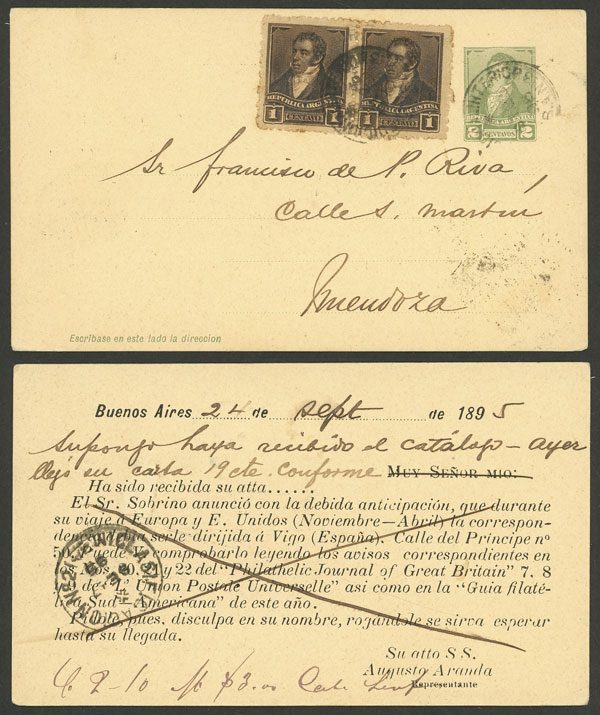 REPUBLICA ARGENTINA
1 CENTAVO 1
REPUBLICA ARGENTINA
1 CENTAVO 1
2 CENTAVOS 2
Sr Francisco de P. Riva,
Calle S. Martin
Mendoza
Escribase en este lado la direccion
Buenos Aires 24 de sept de 1895
Supongo haya recibido el catálogo – ayer
llegó su carta 19 cte. Conforme MUY SEÑOR MIO:
Ha sido recibida su atta......
El Sr. Sobrino anunció con la debida anticipación, que durante
su viaje á Europa y E. Unidos (Noviembre—Abril) la correspon-
dencia serle dirijida á Vigo (España). Calle del Príncipe nº
50, puede comprobarlo leyendo los avisos correspondientes en
los 20, 21 y 22 del "Philathelic Journal of Great Britain" 7. 8
de "L' Union Postale Universelle" así como en la "Guia filaté-
lica Sud-Americana" de este año.
Pídole, pues, disculpa en su nombre, rogándole se sirva esperar
hasta su llegada.
Su atto S S.
Augusto Aranda
Representante
$3.00